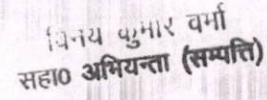 विनय कुमार वर्मा
सहा0 अभियन्ता (सम्पत्ति)